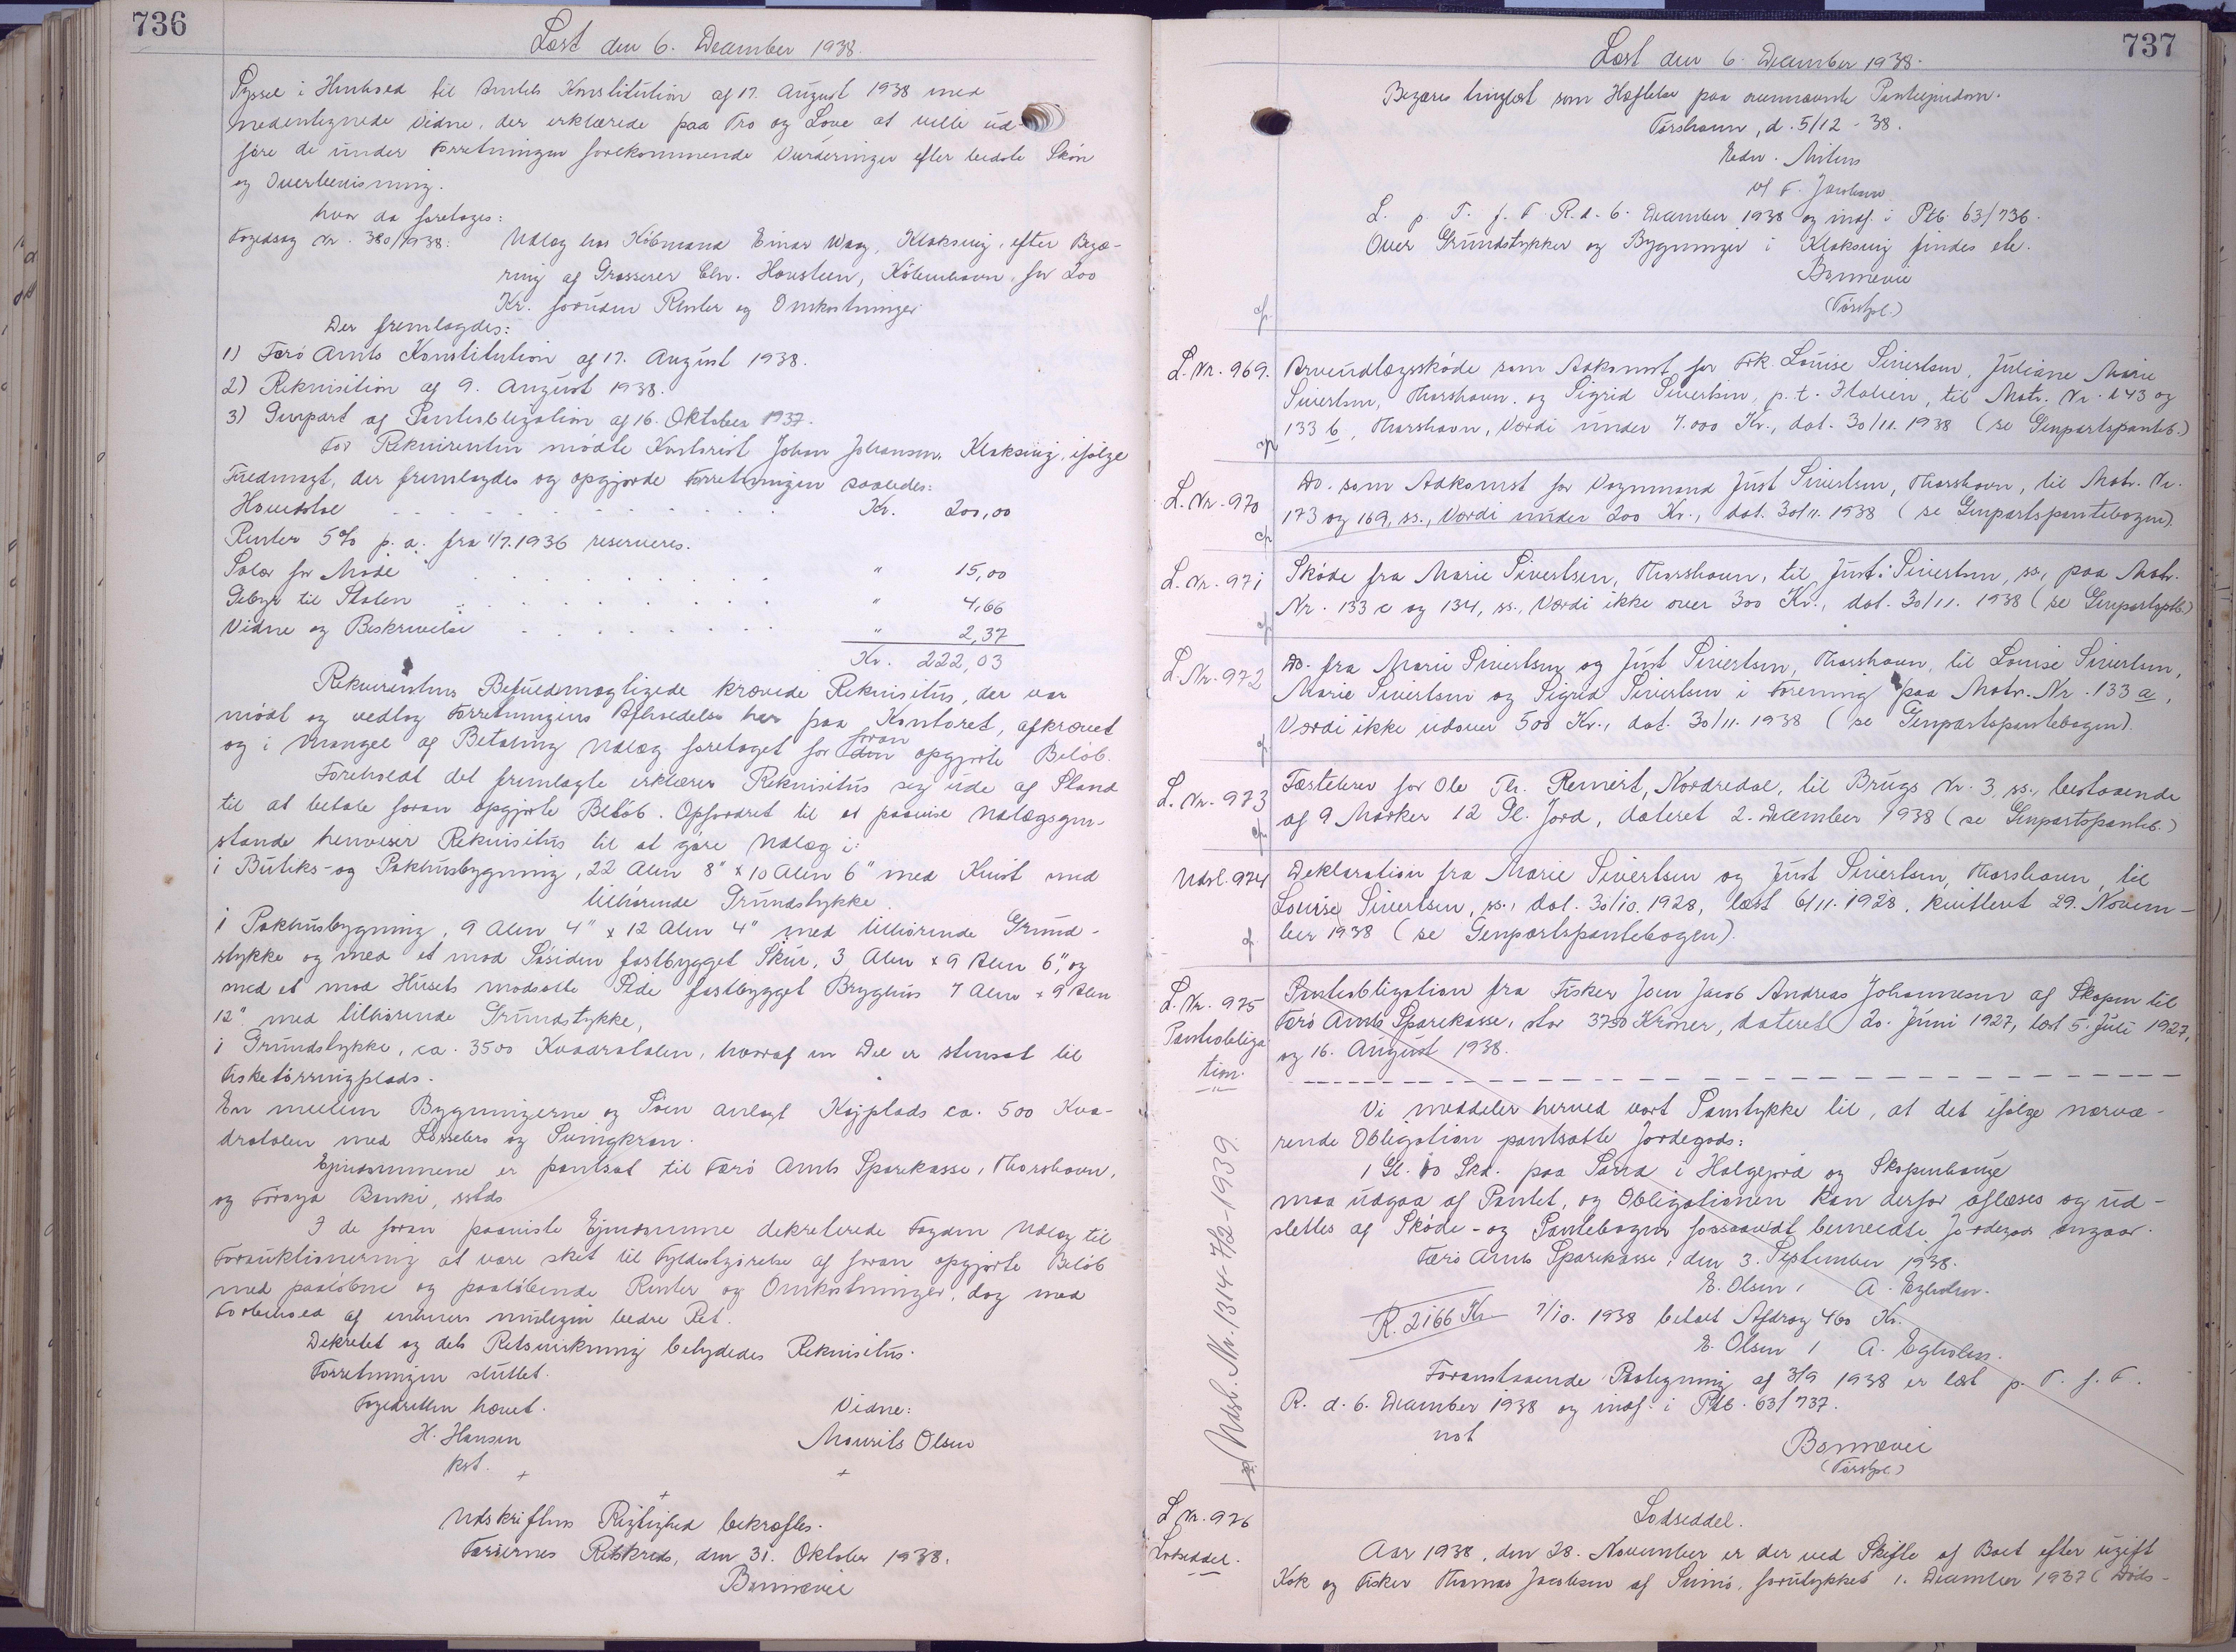 736
Læst den 6. December 1938.
Syssel i Henhold til Amtets Konstitution af 17. August 1938 med
medentegnede Vidne, der erklærede paa Tro og Love at ville ud-
føre de under Forretningen forekommende Vurderinger efter bedste Skøn
og Overbevisning.
hvor da foretages:
Fogedsag Nr. 380/1938: Udlæg hos Købmand Einar Waag, Klaksvig, efter Begæ-
ring af Grosserer Chr. Housteen, København, for 200
Kr. foruden Renter og Omkostninger
Der fremlagdes:
1) Færø Amts Konstitution af 17. August 1938.
2) Rekvisition af 9. August 1938.
3) Genpart af Panteobligation af 16. Oktober 1937.
For Rekvirenten mødte Kontorist Johan Johansen, Klaksvig, ifølge
Fuldmagt, der fremlagdes og opgjorde Forretningen saaledes:
Hovedstol Kr. 200,00
Renter 5% p.a. fra 1/7.1936 reserveres.
Salær for Møde " 15,00
Gebyr til Staten " 4,66
Vidne og Beskrivelse " 2,37
Kr. 222,03
Rekvirentens Befuldmægtigede krævede Rekvisitus, der var
mødt og vedtog Forretningens Afholdelse her paa Kontoret, afkrævet
og i Mangel af Betaling Udlæg foretaget for den foran opgjorte Beløb.
Foreholdt det fremlagte erklærer Rekvisitus sig ude af Stand
til at betale foran opgjorte Beløb. Opfordret til at paavise Udlægsgen-
stande henviser Rekvisitus til at gøre Udlæg i:
i Butiks- og Pakhusbygning, 22 Alen 8" x 10 Alen 6" med Kvist med
tilhørende Grundstykke
i Pakhusbygning, 9 Alen 4" x 12 Alen 4" med tilhørende Grund-
stykke og med et mod Søsiden fastbygget Skur, 3 Alen x 9 Alen 6", og
med et mod Husets modsatte Side fastbygget Bryghus 7 Alen x 9 Alen
12" med tilhørende Grundstykke,
i Grundstykke, ca. 3500 Kvadratalen, hvoraf en Del er stensat til
Fisketørringplads.
En mellem Bygningerne og Søen anlagt Kajplads ca. 500 Kva-
dratalen med Lossebro og Svingkran.
Ejendommene er pantsat til Færø Amts Sparekasse, Thorshavn,
og Føroya Banki, sstds
I de foran paaviste Ejendomme dekreterede Fogden Udlæg til
Forauktionering at være sket til Fyldestgørelse af foran opgjorte Beløb
med paaløbne og paaløbende Renter og Omkostninger, dog med
Forbehold af enhvers muligen bedre Ret.
Dekretet og dets Retsvirkning betydedes Rekvisitus.
Forretningen sluttet.
Fogedretten hævet.
Vidne:
H. Hansen
Mourits Olsen
kst.
Udskriftens Rigtighed bekræftes.
Færøernes Retskreds, den 31. Oktober 1938.
Bornævie
737
Læst den 6. December 1938.
Begæres tinglæst som Hæftelse paa ovennævnte Panteejendom.
Tórshavn, d. 5/12 - 38.
Edw. Mitens
v/ F. Jacobsen
L. p. T. f. F. R. d. 6. December 1938 og indf. i Ptb. 63/736.
Over Grundstykker og Bygninger i Klaksvig findes ete.
Bornævie
L. Nr. 969. Arveudlægsskøde som Adkomst for Frk. Louise Sivertsen, Juliane Marie
Sivertsen, Thorshavn, og Sigrid Sivertsen, p. t. Italien, til Matr. Nr. 143 og
133 b, Thorshavn, Værdi under 7.000 Kr., dat. 30/11. 1938 (se Genpartspanteb.)
L. Nr. 970 Do. som Adkomst for Vognmand Just Sivertsen, Thorshavn, til Matr. Nr.
173 og 169, ss., Værdi under 200 Kr., dat. 30/11. 1938 (se Genpartspantebogen).
L. Nr. 971 Skøde fra Marie Sivertsen, Thorshavn, til Just Sivertsen, ss., paa Matr.
Nr. 133 c og 134, ss., Værdi ikke over 300 Kr., dat. 30/11. 1938 (se Genpartsptb.)
L. Nr. 972 Do. fra Marie Sivertsen og Just Sivertsen, Thorshavn, til Louise Sivertsen,
Marie Sivertsen og Sigrid Sivertsen i Forening paa Matr. Nr. 133 a,
Værdi ikke udover 500 Kr., dat. 30/11. 1938 (se Genpartspantebogen).
L. Nr. 973 Fæstebrev for Ole Th. Reinert, Nordredal, til Brugs Nr. 3, ss., bestaaende
af 9 Marker 12 Gl. Jord, dateret 2. December 1938 (se Genpartspanteb.)
Udsl. 974 Deklaration fra Marie Sivertsen og Just Sivertsen, Thorshavn, til
Louise Sivertsen, ss., dat. 30/10. 1928, læst 6/11. 1928, kvitteret 29. Novem-
ber 1938 (se Genpartspantebogen).
L. Nr. 975 Panteobligation fra Fisker Joen Jacob Andreas Johannesen af Skopen til
Panteobliga- Færø Amts Sparekasse, stor 3750 Kroner, dateret 20. Juni 1927, læst 5. Juli 1927,
tion. og 16. August 1938.
Vi meddeler herved vort Samtykke til, at det ifølge nærvæ-
rende Obligation pantsatte Jordegods:
1 Gl. 10 Skd. paa Sand i Halgejord og Skopenhauge
maa udgaa af Pantet, og Obligationen kan derfor aflæses og ud-
slettes af Skøde- og Pantebogen forsaavidt bemeldte Jordegods angaar.
Færø Amts Sparekasse, den 3. September 1938.
E. Olsen / A. Egholm.
R. 2166 Kr 7/10. 1938 betalt Afdrag 460 Kr.
E. Olsen / A. Egholm.
Foranstaaende Paategning af 3/9 1938 er læst p. T. f. F.
R. d. 6. December 1938 og indf. i Ptb. 63/737.
Bornævie
Udsl. Nr. 1314-7/2-1939
L. Nr. 976 Lodseddel.
Lodseddel. Aar 1938, den 28. November er der ved Skifte af Boet efter ugift
Kok og Fisker Thomas Jacobsen af Sumø, forulykket 1. December 1937 (Døds-